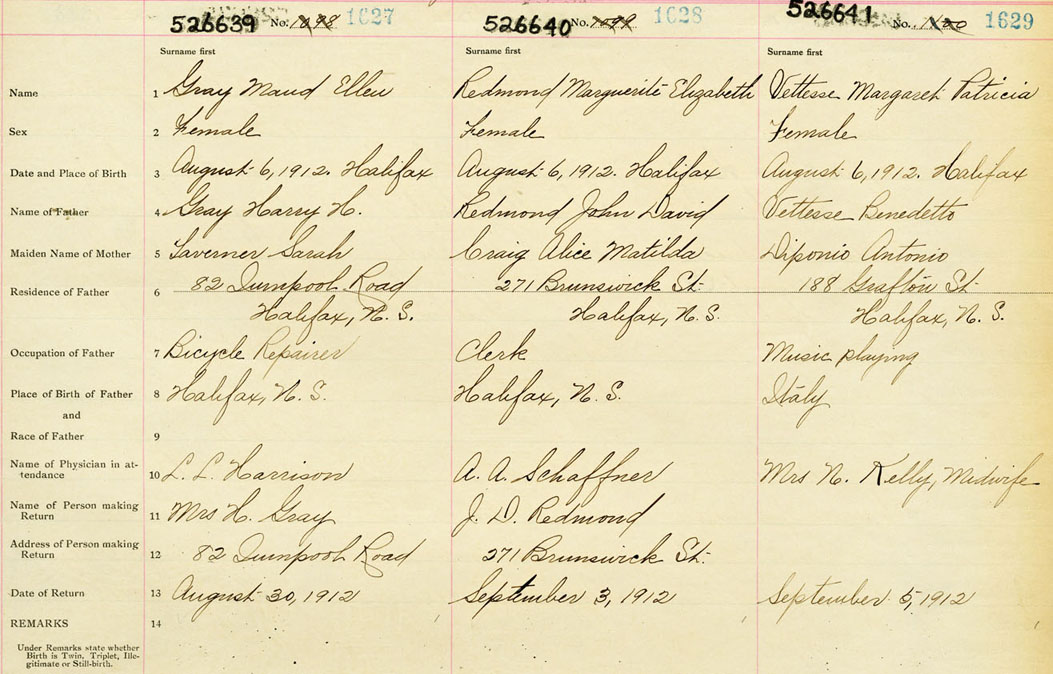 526639 No. 1098 1627 526640 No. 1099 1628 526641 No. 1100 1629
Surname first Surname first Surname first
Name 1 Gray Maud Ellen Redmond Marguerite Elizabeth Vettesse Margaret Patricia
Sex 2 Female Female Female
Date and Place of Birth 3 August 6, 1912. Halifax August 6, 1912. Halifax August 6, 1912. Halifax
Name of Father 4 Gray Harry H. Redmond John David Vettesse Benedetto
Maiden Name of Mother 5 Taverner Sarah Craig Alice Matilda Diponio Antonio
Residence of Father 6 82 Quinpool Road 271 Brunswick St. 188 Grafton St.
Halifax, N. S. Halifax, N. S. Halifax, N. S.
Occupation of Father 7 Bicycle Repairer Clerk Music playing
Place of Birth of Father 8 Halifax, N. S. Halifax, N. S. Italy
and
Race of Father 9
Name of Physician in at-
tendance 10 L. L. Harrison A. A. Schaffner Mrs N. Kelly, Midwife
Name of Person making
Return 11 Mrs H. Gray J. D. Redmond
Address of Person making
Return 12 82 Quinpool Road 271 Brunswick St.
Date of Return 13 August 30, 1912 September 3, 1912 September 5, 1912
REMARKS 14
Under Remarks state whether
Birth is Twin, Triplet, Ille-
gitimate or Still-birth.